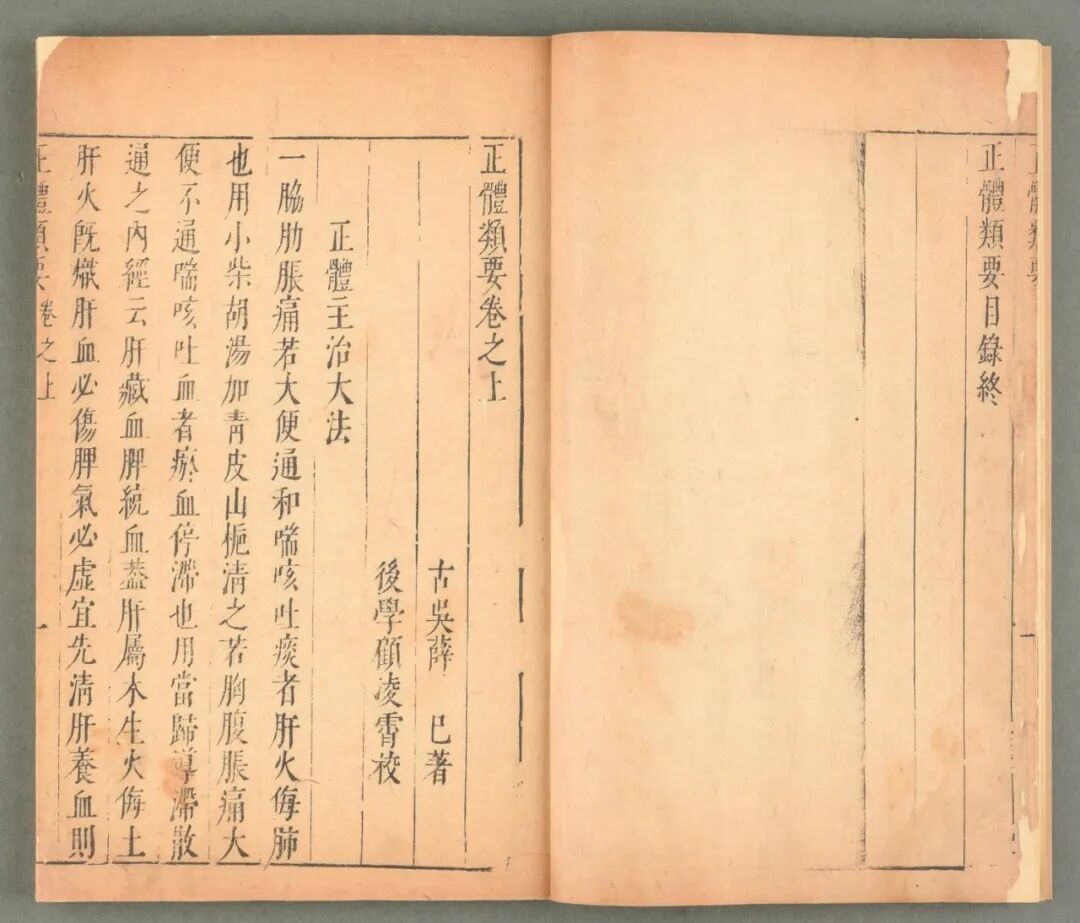 正體類要
一
正體類要目錄終
正體類要卷之上
古吳薛　已著
後學顧凌霄校
正體主治大法
一脇肋脹痛若大便通和喘咳吐痰者肝火侮肺
也用小柴胡湯加青皮山梔清之若胸腹脹痛大
便不通喘咳吐血者瘀血停滯也用當歸導滯散
通之內經云肝藏血脾統血葢肝屬木生火侮土
肝火旣熾肝血必傷脾氣必虛宜先清肝養血則
正體類要　卷之上　一